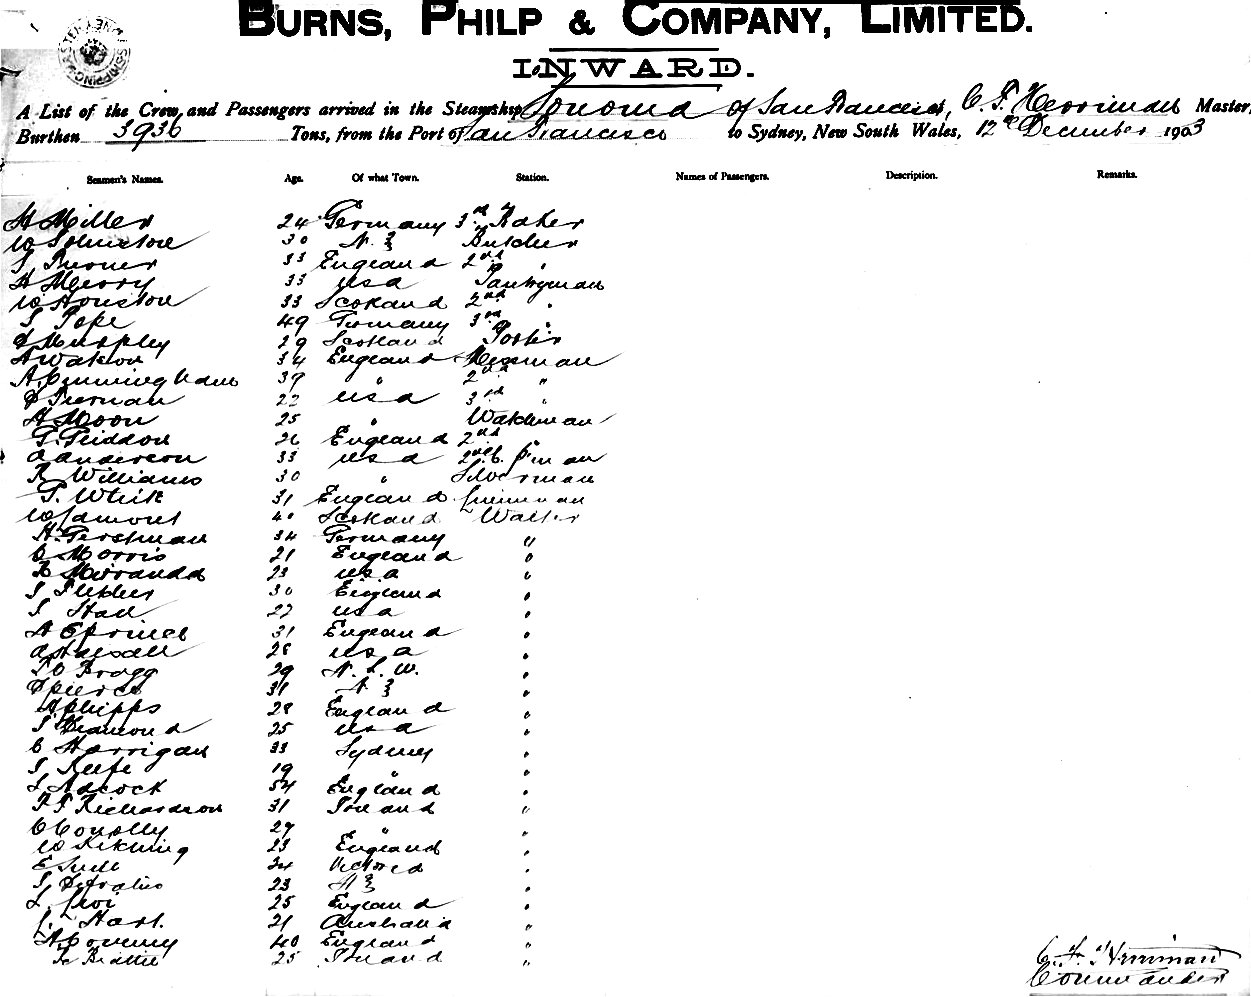 BURNS, PHILP & COMPANY, LIMITED.
INWARD.
A List of the Crew and Passengers arrived in the Steamship Sonoma of San Francisco, C. F. Herriman Master,
Burthen 3936 Tons, from the Port of San Francisco to Sydney, New South Wales, 12th December 1903
Seamen's Names. Age. Of what Town. Station. Names of Passengers. Description. Remarks.
H Miller 24 Germany 3rd Baker
W Johnston 30 N. Z Butcher
J Turner 33 England 2nd "
H Merry 33 USA Pantryman
W Houston 33 Scotland 2nd "
J Pope 49 Germany 3rd "
J Murphy 29 Scotland Porter
H Watson 34 England Messman
A Cunningham 39 " 2nd "
Tiernan 22 USA 3rd "
H Moon 25 " Watchman
26 England 2nd "
A Anderson 33 USA
R Williams 30 " Silverman
T. White 31 England
W Lamont 40 Scotland Waiter
H. Gerstman 34 Germany "
C Morris 21 England "
Miranda 23 USA "
J Fletcher 30 England "
J Hall 27 USA "
A E Prince 31 England "
28 USA "
Bragg 29 N. S. W. "
Pierce 31 N Z "
A Phipps 28 England "
J Diamond 25 USA "
C Harrigan 33 Sydney "
J Keefe 19 " "
J Adcock 54 England "
F F Richardson 31 Ireland "
C Conolly 27 " "
W 23 England "
E 24 Victoria "
J 23 N Z "
L Levi 25 England "
J. Hart. 21 Australia "
A 40 England "
Beattie 25 Ireland "
C. F. Herriman
Commander